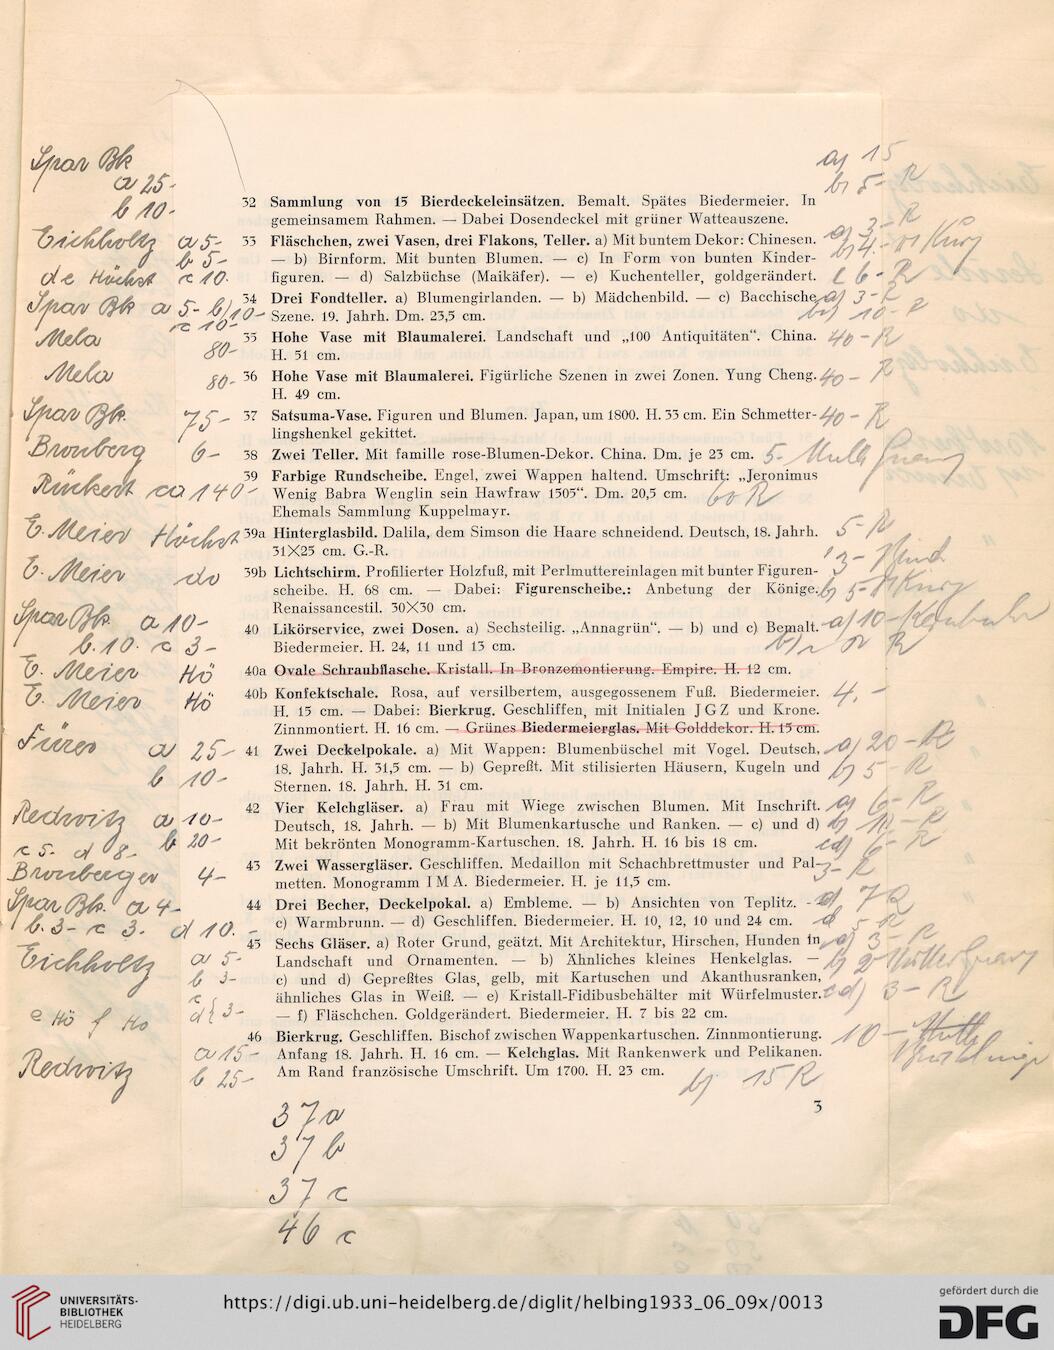 Spar Bk
a 25-
b 10-
a) 15
b) 5- R
32 Sammlung von 15 Bierdeckeleinsätzen. Bemalt. Spätes Biedermeier. In
gemeinsamem Rahmen. — Dabei Dosendeckel mit grüner Watteauszene.
Eichholtz a 5-
b 5-
de Höchst c 10.
33 Fläschchen, zwei Vasen, drei Flakons, Teller. a) Mit buntem Dekor: Chinesen.
— b) Birnform. Mit bunten Blumen. — c) In Form von bunten Kinder-
figuren. — d) Salzbüchse (Maikäfer). — e) Kuchenteller, goldgerändert.
a) 3- R
b) 4-
c 6- R
Spar Bk a 5- b) 10-
c 10-
34 Drei Fondteller. a) Blumengirlanden. — b) Mädchenbild. — c) Bacchische
Szene. 19. Jahrh. Dm. 23,5 cm.
a) 3- R
10-
Mela 80-
35 Hohe Vase mit Blaumalerei. Landschaft und „100 Antiquitäten“. China.
H. 51 cm.
40- R
Mela 80-
36 Hohe Vase mit Blaumalerei. Figürliche Szenen in zwei Zonen. Yung Cheng.
H. 49 cm.
40- R
Spar Bk. 75-
37 Satsuma-Vase. Figuren und Blumen. Japan, um 1800. H. 33 cm. Ein Schmetter-
lingshenkel gekittet.
40- R
Bronberg 6-
38 Zwei Teller. Mit famille rose-Blumen-Dekor. China. Dm. je 23 cm.
5-
Rückert ca 140-
39 Farbige Rundscheibe. Engel, zwei Wappen haltend. Umschrift: „Jeronimus
Wenig Babra Wenglin sein Hawfraw 1505“. Dm. 20,5 cm.
Ehemals Sammlung Kuppelmayr.
60 R
E. Meier Höchst
39a Hinterglasbild. Dalila, dem Simson die Haare schneidend. Deutsch, 18. Jahrh.
31×25 cm. G.-R.
5- R
E. Meier do
39b Lichtschirm. Profilierter Holzfuß, mit Perlmuttereinlagen mit bunter Figuren-
scheibe. H. 68 cm. — Dabei: Figurenscheibe.: Anbetung der Könige.
Renaissancestil. 30×30 cm.
3-
b) 5-
Spar Bk. a 10-
b. 10. c 3-
40 Likörservice, zwei Dosen. a) Sechsteilig. „Annagrün“. — b) und c) Bemalt.
Biedermeier. H. 24, 11 und 13 cm.
a) 10-
R
E. Meier Hö
40a Ovale Schraubflasche. Kristall. In Bronzemontierung. Empire. H. 12 cm.
E. Meier Hö
40b Konfektschale. Rosa, auf versilbertem, ausgegossenem Fuß. Biedermeier.
H. 15 cm. — Dabei: Bierkrug. Geschliffen, mit Initialen J G Z und Krone.
Zinnmontiert. H. 16 cm. — Grünes Biedermeierglas. Mit Golddekor. H. 15 cm.
4.-
Fürer a 25-
b 10-
41 Zwei Deckelpokale. a) Mit Wappen: Blumenbüschel mit Vogel. Deutsch,
18. Jahrh. H. 31,5 cm. — b) Gepreßt. Mit stilisierten Häusern, Kugeln und
Sternen. 18. Jahrh. H. 31 cm.
a) 20- R
b) 5- R
Redwitz a 10-
b 20-
c 5. d 8-
42 Vier Kelchgläser. a) Frau mit Wiege zwischen Blumen. Mit Inschrift.
Deutsch, 18. Jahrh. — b) Mit Blumenkartusche und Ranken. — c) und d)
Mit bekrönten Monogramm-Kartuschen. 18. Jahrh. H. 16 bis 18 cm.
a) 6- R
b) 10- R
cd) 6- R
Bronberger 4-
43 Zwei Wassergläser. Geschliffen. Medaillon mit Schachbrettmuster und Pal-
metten. Monogramm I M A. Biedermeier. H. je 11,5 cm.
3- R
Spar Bk. a 4-
b. 3- c 3. d 10.-
44 Drei Becher, Deckelpokal. a) Embleme. — b) Ansichten von Teplitz. -
c) Warmbrunn. — d) Geschliffen. Biedermeier. H. 10, 12, 10 und 24 cm.
7 R
d 5 R
Eichholtz a 5-
b 3-
c
d 3-
e Hö f Hö
45 Sechs Gläser. a) Roter Grund, geätzt. Mit Architektur, Hirschen, Hunden in
Landschaft und Ornamenten. — b) Ähnliches kleines Henkelglas. —
c) und d) Gepreßtes Glas, gelb, mit Kartuschen und Akanthusranken,
ähnliches Glas in Weiß. — e) Kristall-Fidibusbehälter mit Würfelmuster.
— f) Fläschchen. Goldgerändert. Biedermeier. H. 7 bis 22 cm.
a) 3- R
b) 2-
cd) 3- R
Redwitz a 15-
b 25-
46 Bierkrug. Geschliffen. Bischof zwischen Wappenkartuschen. Zinnmontierung.
Anfang 18. Jahrh. H. 16 cm. — Kelchglas. Mit Rankenwerk und Pelikanen.
Am Rand französische Umschrift. Um 1700. H. 23 cm.
10-
b) 15 R
3
37a
37 b
37 c
46 c
UNIVERSITÄTS-
BIBLIOTHEK
HEIDELBERG
https://digi.ub.uni-heidelberg.de/diglit/helbing1933_06_09x/0013
gefördert durch die
DFG